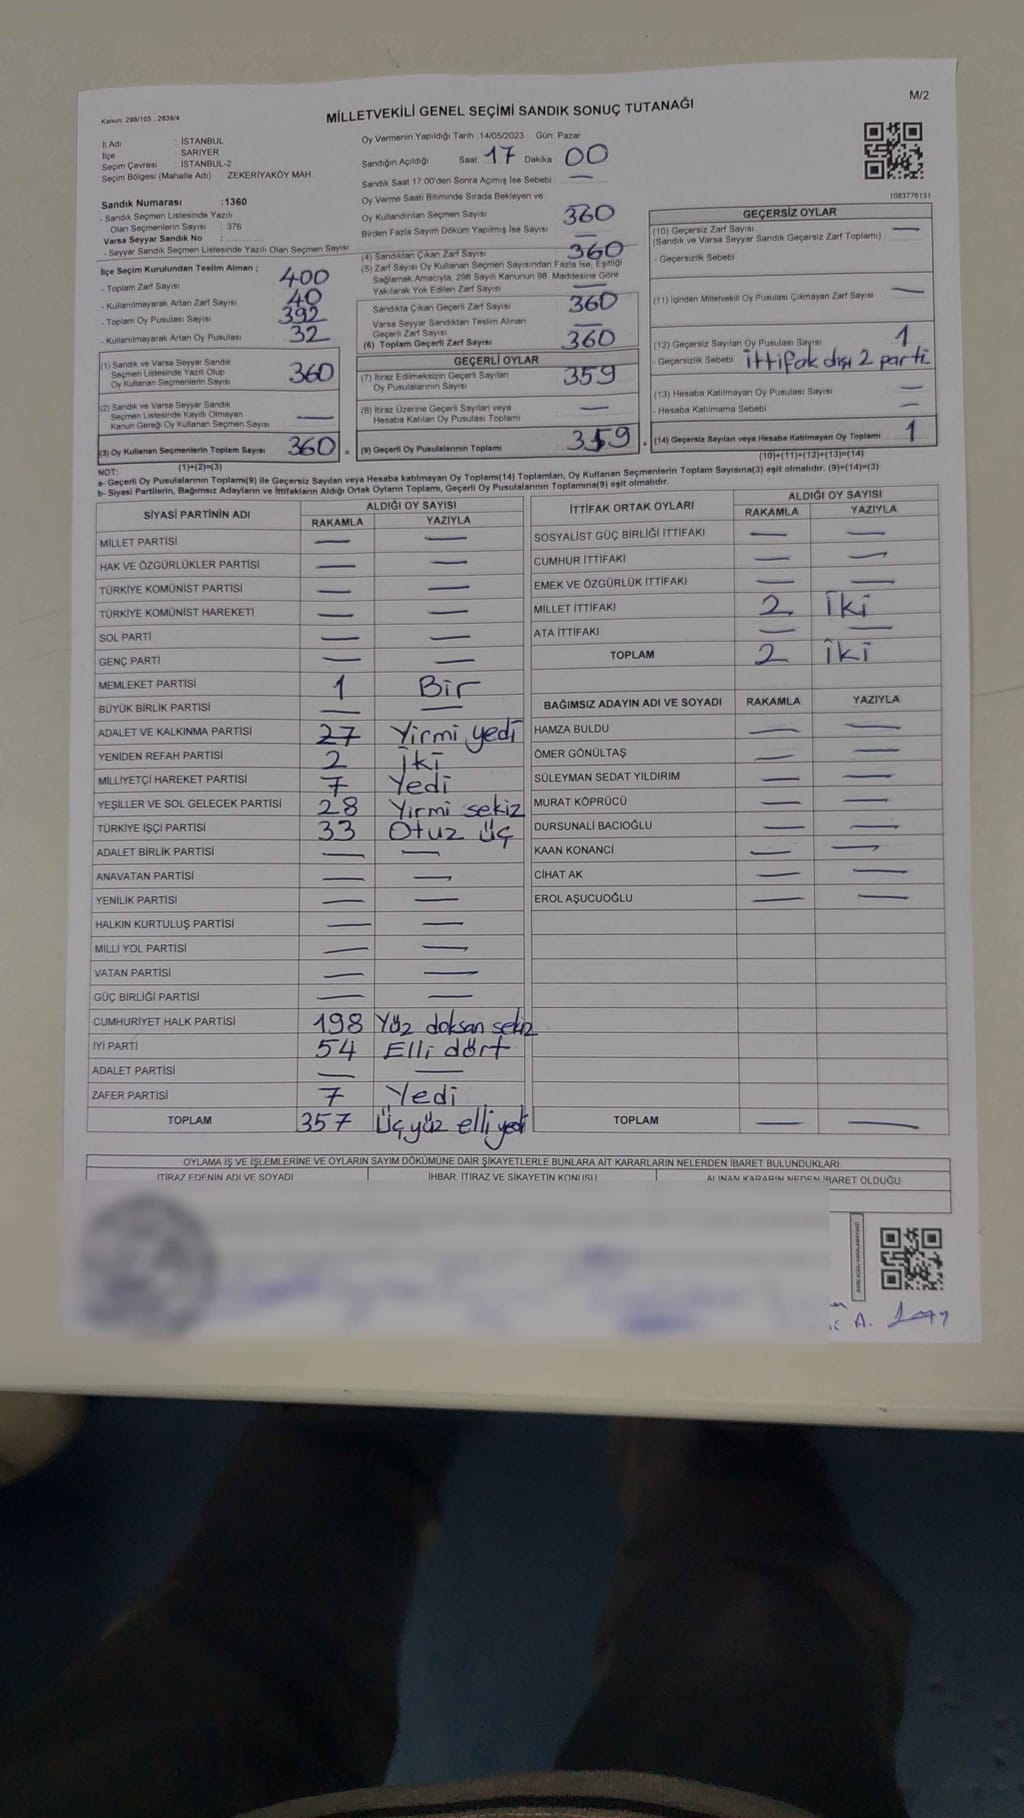 M/2
Kanun: 298/105 , 2839/4
MİLLETVEKİLİ GENEL SEÇİMİ SANDIK SONUÇ TUTANAĞI
İl Adı : İSTANBUL
İlçe : SARIYER
Seçim Çevresi : İSTANBUL-2
Seçim Bölgesi (Mahalle Adı) ZEKERİYAKÖY MAH.
Oy Vermenin Yapıldığı Tarih :14/05/2023 Gün: Pazar
Sandığın Açıldığı Saat: 17 Dakika : 00
Sandık Saat 17.00'den Sonra Açımış İse Sebebi : —
Oy Verme Saati Bitiminde Sırada Bekleyen ve
Oy Kullandırılan Seçmen Sayısı —
360
Birden Fazla Sayım Döküm Yapılmış İse Sayısı —
1083776131
Sandık Numarası :1360
- Sandık Seçmen Listesinde Yazılı
Olan Seçmenlerin Sayısı : 376
Varsa Seyyar Sandık No :
- Seyyar Sandık Seçmen Listesinde Yazılı Olan Seçmen Sayısı
İlçe Seçim Kurulundan Teslim Alınan ;
- Toplam Zarf Sayısı 400
- Kullanılmayarak Artan Zarf Sayısı 40
- Toplam Oy Pusulası Sayısı 392
- Kullanılmayarak Artan Oy Pusulası 32
(1) Sandık ve Varsa Seyyar Sandık
Seçmen Listesinde Yazılı Olup
Oy Kullanan Seçmenlerin Sayısı 360
(2) Sandık ve Varsa Seyyar Sandık
Seçmen Listesinde Kayıtlı Olmayan
Kanun Gereği Oy Kullanan Seçmen Sayısı —
(3) Oy Kullanan Seçmenlerin Toplam Sayısı 360 =
(1)+(2)=(3)
(4) Sandıktan Çıkan Zarf Sayısı 360
(5) Zarf Sayısı Oy Kullanan Seçmen Sayısından Fazla İse, Eşitliği
Sağlamak Amacıyla, 298 Sayılı Kanunun 98. Maddesine Göre
Yakılarak Yok Edilen Zarf Sayısı —
Sandıkta Çıkan Geçerli Zarf Sayısı 360
Varsa Seyyar Sandıktan Teslim Alınan
Geçerli Zarf Sayısı —
(6) Toplam Geçerli Zarf Sayısı 360
GEÇERLİ OYLAR
(7) İtiraz Edilmeksizin Geçerli Sayılan
Oy Pusulalarının Sayısı 359
(8) İtiraz Üzerine Geçerli Sayılan veya
Hesaba Katılan Oy Pusulası Toplamı —
(9) Geçerli Oy Pusulalarının Toplamı 359 +
GEÇERSİZ OYLAR
(10) Geçersiz Zarf Sayısı
(Sandık ve Varsa Seyyar Sandık Geçersiz Zarf Toplamı) : —
- Geçersizlik Sebebi :
(11) İçinden Milletvekili Oy Pusulası Çıkmayan Zarf Sayısı : —
(12) Geçersiz Sayılan Oy Pusulası Sayısı : 1
- Geçersizlik Sebebi : İttifak dışı 2 parti
(13) Hesaba Katılmayan Oy Pusulası Sayısı : —
- Hesaba Katılmama Sebebi : —
(14) Geçersiz Sayılan veya Hesaba Katılmayan Oy Toplamı : 1
(10)+(11)+(12)+(13)=(14)
NOT:
a- Geçerli Oy Pusulalarının Toplamı(9) ile Geçersiz Sayılan veya Hesaba katılmayan Oy Toplamı(14) Toplamları, Oy Kullanan Seçmenlerin Toplam Sayısına(3) eşit olmalıdır. (9)+(14)=(3)
b- Siyasi Partilerin, Bağımsız Adayların ve İttifakların Aldığı Ortak Oyların Toplamı, Geçerli Oy Pusulalarının Toplamına(9) eşit olmalıdır.
SİYASİ PARTİNİN ADI ALDIĞI OY SAYISI
RAKAMLA YAZIYLA
MİLLET PARTİSİ — —
HAK VE ÖZGÜRLÜKLER PARTİSİ — —
TÜRKİYE KOMÜNİST PARTİSİ — —
TÜRKİYE KOMÜNİST HAREKETİ — —
SOL PARTİ — —
GENÇ PARTİ — —
MEMLEKET PARTİSİ 1 Bir
BÜYÜK BİRLİK PARTİSİ — —
ADALET VE KALKINMA PARTİSİ 27 Yirmi yedi
YENİDEN REFAH PARTİSİ 2 İki
MİLLİYETÇİ HAREKET PARTİSİ 7 Yedi
YEŞİLLER VE SOL GELECEK PARTİSİ 28 Yirmi sekiz
TÜRKİYE İŞÇİ PARTİSİ 33 Otuz üç
ADALET BİRLİK PARTİSİ — —
ANAVATAN PARTİSİ — —
YENİLİK PARTİSİ — —
HALKIN KURTULUŞ PARTİSİ — —
MİLLİ YOL PARTİSİ — —
VATAN PARTİSİ — —
GÜÇ BİRLİĞİ PARTİSİ — —
CUMHURİYET HALK PARTİSİ 198 Yüz doksan sekiz
İYİ PARTİ 54 Elli dört
ADALET PARTİSİ — —
ZAFER PARTİSİ 7 Yedi
TOPLAM 357 Üçyüz elli yedi
İTTİFAK ORTAK OYLARI ALDIĞI OY SAYISI
RAKAMLA YAZIYLA
SOSYALİST GÜÇ BİRLİĞİ İTTİFAKI — —
CUMHUR İTTİFAKI — —
EMEK VE ÖZGÜRLÜK İTTİFAKI — —
MİLLET İTTİFAKI 2 İki
ATA İTTİFAKI — —
TOPLAM 2 İki
BAĞIMSIZ ADAYIN ADI VE SOYADI RAKAMLA YAZIYLA
HAMZA BULDU — —
ÖMER GÖNÜLTAŞ — —
SÜLEYMAN SEDAT YILDIRIM — —
MURAT KÖPRÜCÜ — —
DURSUNALİ BACIOĞLU — —
KAAN KONANCİ — —
CİHAT AK — —
EROL AŞUCUOĞLU — —
TOPLAM — —
OYLAMA İŞ VE İŞLEMLERİNE VE OYLARIN SAYIM DÖKÜMÜNE DAİR ŞİKAYETLERLE BUNLARA AİT KARARLARIN NELERDEN İBARET BULUNDUKLARI
İTİRAZ EDENİN ADI VE SOYADI İHBAR, İTİRAZ VE ŞİKAYETİN KONUSU ALINAN KARARIN NEDEN İBARET OLDUĞU
A.